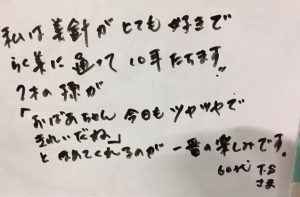 私は美針がとても好きで
らく美に通って10年たちます。
7才の孫が
「おばあちゃん今日もツヤツヤで
きれいだね」
とほめてくれるのが一番の楽しみです。
60代 T.S
さま